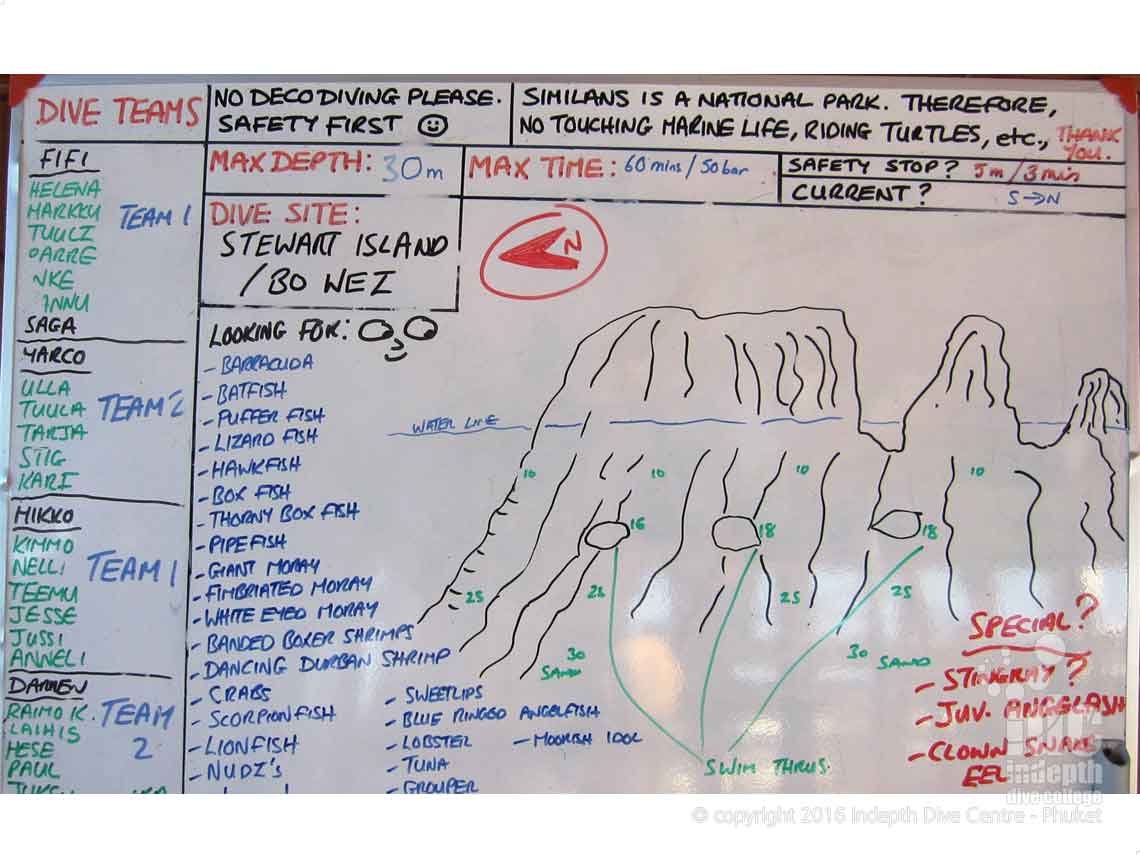 DIVE TEAMS
NO DECO DIVING PLEASE.
SAFETY FIRST
SIMILANS IS A NATIONAL PARK. THEREFORE,
NO TOUCHING MARINE LIFE, RIDING TURTLES, etc., THANK
YOU.
MAX DEPTH: 30m
MAX TIME: 60 mins / 50 bar
SAFETY STOP? 5m / 3 min
CURRENT? S→N
DIVE SITE:
STEWART ISLAND
N
FIFI
HELENA
MARKKU
TEAM 1
SAGA
MARCO
ULLA
TUULA
TEAM 2
TARJA
STIG
KARI
MIKKO
KIMMO
NELLI
TEAM 1
TEEMU
JESSE
JUSSI
ANNELI
DARREN
RAIMO K.
TEAM
LAIHIS
2
HESE
PAUL
LOOKING FOR:
- BARRACUDA
- BATFISH
- PUFFER FISH
- LIZARD FISH
- HAWKFISH
- BOX FISH
- THORNY BOX FISH
- PIPEFISH
- GIANT MORAY
- FIMBRIATED MORAY
- WHITE EYED MORAY
- BANDED BOXER SHRIMPS
- DANCING DURBAN SHRIMP
- CRABS
- SCORPIONFISH
- LIONFISH
- NUDI's
- SWEETLIPS
- BLUE RINGED ANGELFISH
- LOBSTER
- MOORISH IDOL
- TUNA
- GROUPER
WATER LINE
10
10
10
10
16
18
18
25
25
25
25
30
SAND
30 SAND
SWIM THRUS
SPECIAL?
- STINGRAY?
- JUV. ANGELFISH
- CLOWN SNAKE
EEL
indepth
dive college
© copyright 2016 Indepth Dive Centre - Phuket